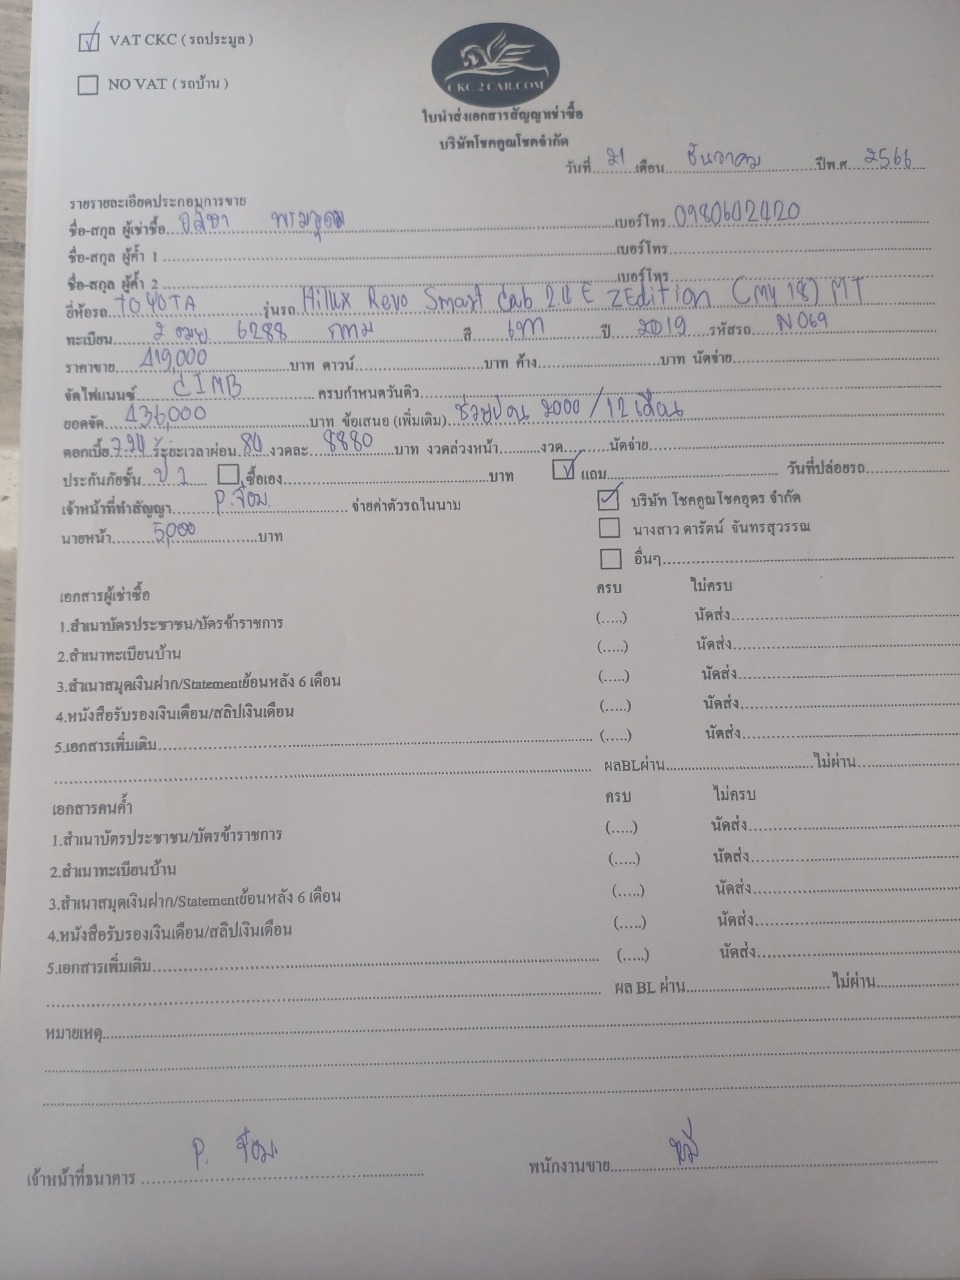 ☑ VAT CKC ( รถประมูล )
☐ NO VAT ( รถบ้าน )
CKC 2 CAR.COM
ใบนำส่งเอกสารสัญญาเช่าซื้อ
บริษัทโชคคูณโชคจำกัด
วันที่ 21 เดือน ธันวาคม ปีพ.ศ. 2566
รายรายละเอียดประกอบการขาย
ชื่อ-สกุล ผู้เช่าซื้อ เบอร์โทร 0980642420
ชื่อ-สกุล ผู้ค้ำ 1 เบอร์โทร
ชื่อ-สกุล ผู้ค้ำ 2 เบอร์โทร
ยี่ห้อรถ TOYOTA รุ่นรถ Hilux Revo Smart Cab 2.4 E ZEdition (MY 18) MT
ทะเบียน 6288 กทม สี เทา ปี 2019 รหัสรถ N069
ราคาขาย 419,000 บาท ดาวน์ บาท ค้าง บาท นัดจ่าย
จัดไฟแนนซ์ CIMB ครบกำหนดวันคิว
ยอดจัด 436,000 บาท ข้อเสนอ (เพิ่มเติม) ช่วยผ่อน 2000 / 12 เดือน
ดอกเบี้ย ระยะเวลาผ่อน 84 งวดละ 8880 บาท งวดล่วงหน้า งวด นัดจ่าย
ประกันภัยชั้น ป 1 ☐ ซื้อเอง บาท ☑ แถม วันที่ปล่อยรถ
เจ้าหน้าที่ทำสัญญา P.จ๊อบ จ่ายค่าตัวรถในนาม ☑ บริษัท โชคคูณโชคอุดร จำกัด
นายหน้า 5,000 บาท ☐ นางสาว ดารัตน์ จันทรสุวรรณ
☐ อื่นๆ
เอกสารผู้เช่าซื้อ ครบ ไม่ครบ
1.สำเนาบัตรประชาชน/บัตรข้าราชการ (.....) นัดส่ง
2.สำเนาทะเบียนบ้าน (.....) นัดส่ง
3.สำเนาสมุดเงินฝาก/Statementย้อนหลัง 6 เดือน (.....) นัดส่ง
4.หนังสือรับรองเงินเดือน/สลิปเงินเดือน (.....) นัดส่ง
5.เอกสารเพิ่มเติม (.....) นัดส่ง
ผลBLผ่าน ไม่ผ่าน
เอกสารคนค้ำ ครบ ไม่ครบ
1.สำเนาบัตรประชาชน/บัตรข้าราชการ (.....) นัดส่ง
2.สำเนาทะเบียนบ้าน (.....) นัดส่ง
3.สำเนาสมุดเงินฝาก/Statementย้อนหลัง 6 เดือน (.....) นัดส่ง
4.หนังสือรับรองเงินเดือน/สลิปเงินเดือน (.....) นัดส่ง
5.เอกสารเพิ่มเติม (.....) นัดส่ง
ผล BL ผ่าน ไม่ผ่าน
หมายเหตุ
เจ้าหน้าที่ธนาคาร P. จ๊อบ พนักงานขาย